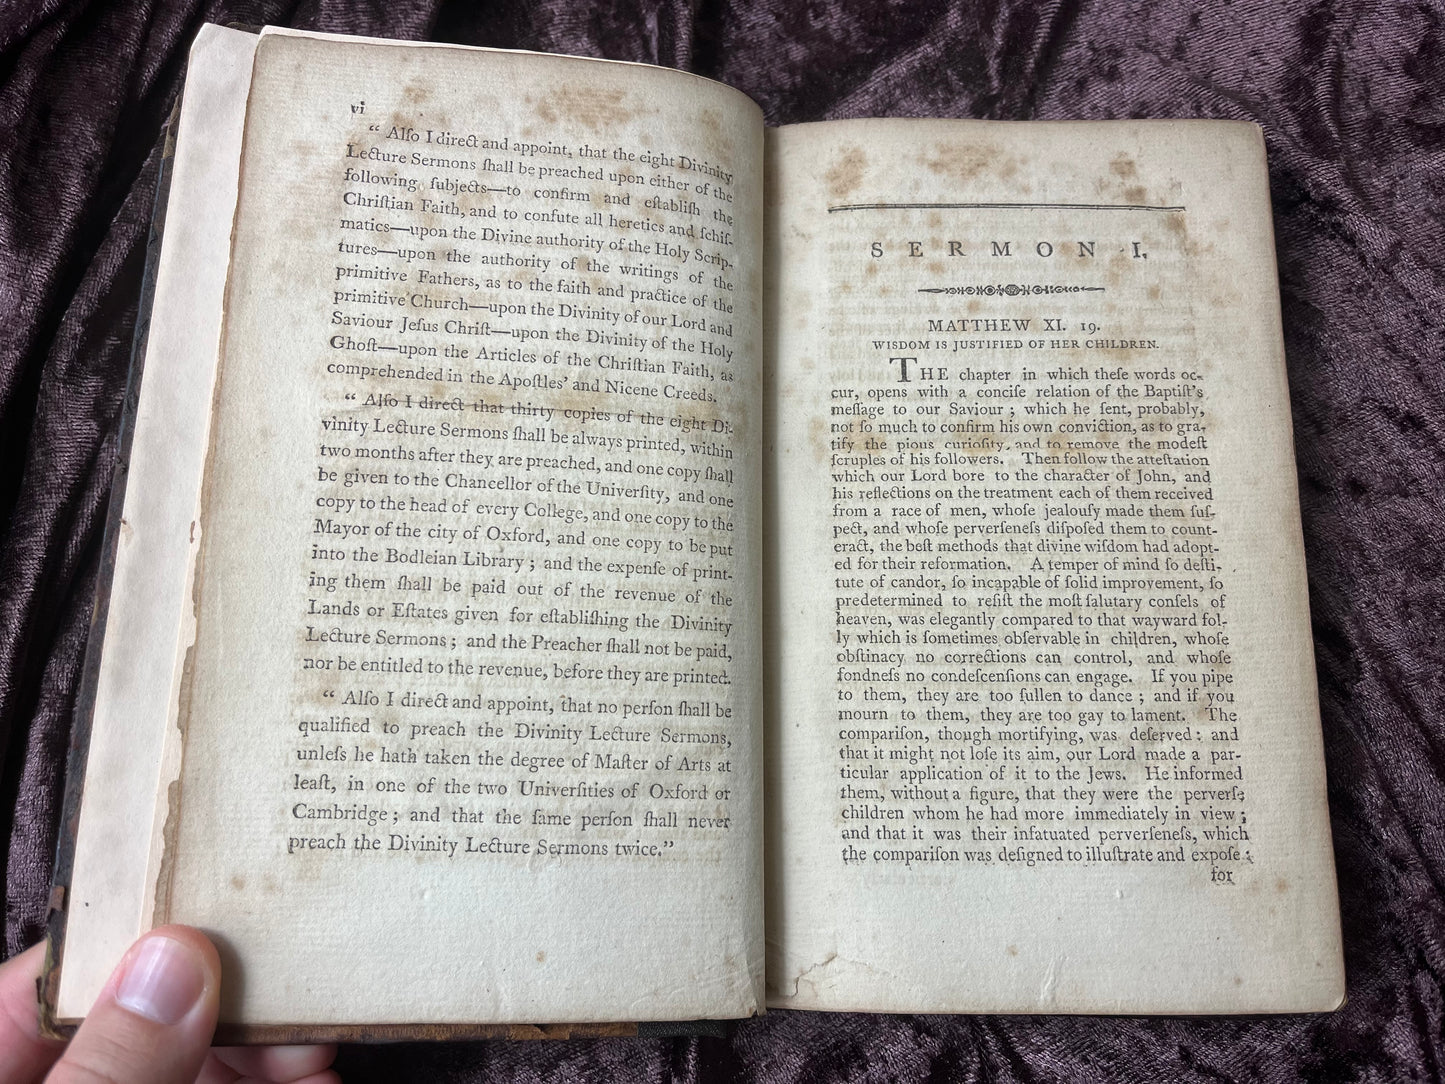 vi
“ Alſo I direct and appoint, that the eight Divinity
Lecture Sermons ſhall be preached upon either of the
following ſubjects—to confirm and eſtabliſh the
Chriſtian Faith, and to confute all heretics and ſchiſ-
matics—upon the Divine authority of the Holy Scrip-
tures—upon the authority of the writings of the
primitive Fathers, as to the faith and practice of the
primitive Church—upon the Divinity of our Lord and
Saviour Jeſus Chriſt—upon the Divinity of the Holy
Ghoſt—upon the Articles of the Chriſtian Faith, as
comprehended in the Apoſtles’ and Nicene Creeds.
“ Alſo I direct that thirty copies of the eight Di-
vinity Lecture Sermons ſhall be always printed, within
two months after they are preached, and one copy ſhall
be given to the Chancellor of the Univerſity, and one
copy to the head of every College, and one copy to the
Mayor of the city of Oxford, and one copy to be put
into the Bodleian Library ; and the expenſe of print-
ing them ſhall be paid out of the revenue of the
Lands or Eſtates given for eſtabliſhing the Divinity
Lecture Sermons ; and the Preacher ſhall not be paid,
nor be entitled to the revenue, before they are printed.
“ Alſo I direct and appoint, that no perſon ſhall be
qualified to preach the Divinity Lecture Sermons,
unleſs he hath taken the degree of Maſter of Arts at
leaſt, in one of the two Univerſities of Oxford or
Cambridge ; and that the ſame perſon ſhall never
preach the Divinity Lecture Sermons twice.”
SERMON I.
MATTHEW XI. 19.
WISDOM IS JUSTIFIED OF HER CHILDREN.
THE chapter in which theſe words oc-
cur, opens with a conciſe relation of the Baptiſt’s
meſſage to our Saviour ; which he ſent, probably,
not ſo much to confirm his own conviction, as to gra-
tify the pious curioſity, and to remove the modeſt
ſcruples of his followers. Then follow the atteſtation
which our Lord bore to the character of John, and
his reflections on the treatment each of them received
from a race of men, whoſe jealouſy made them ſuſ-
pect, and whoſe perverſeneſs diſpoſed them to count-
eract, the beſt methods that divine wiſdom had adopt-
ed for their reformation. A temper of mind ſo deſti-
tute of candor, ſo incapable of ſolid improvement, ſo
predetermined to reſiſt the moſt ſalutary conſels of
heaven, was elegantly compared to that wayward fol-
ly which is ſometimes obſervable in children, whoſe
obſtinacy no corrections can control, and whoſe
fondneſs no condeſcenſions can engage. If you pipe
to them, they are too ſullen to dance ; and if you
mourn to them, they are too gay to lament. The
compariſon, though mortifying, was deſerved : and
that it might not loſe its aim, our Lord made a par-
ticular application of it to the Jews. He informed
them, without a figure, that they were the perverſe
children whom he had more immediately in view ;
and that it was their infatuated perverſeneſs, which
the compariſon was deſigned to illuſtrate and expoſe :
for